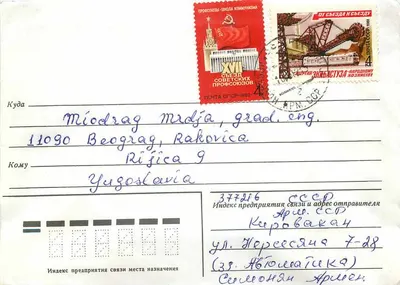 ПРОФСОЮЗЫ-ШКОЛА КОММУНИЗМА
XVII
СЪЕЗД
СОВЕТСКИХ
ПРОФСОЮЗОВ
ПОЧТА СССР
4
ОТ СЪЕЗДА К СЪЕЗДУ
4
АРМ. ССР
Куда
Miodrag Mrdja, grad. eng.
11090 Beograd, Rakovica
Кому
Rišica 9
Yugoslavia
377216 СССР
Индекс предприятия связи и адрес отправителя
Арм. ССР
Кировакан
ул. Нерсесяна 7-28
(зд. Автоматика)
Симонян Армен
Индекс предприятия связи места назначения